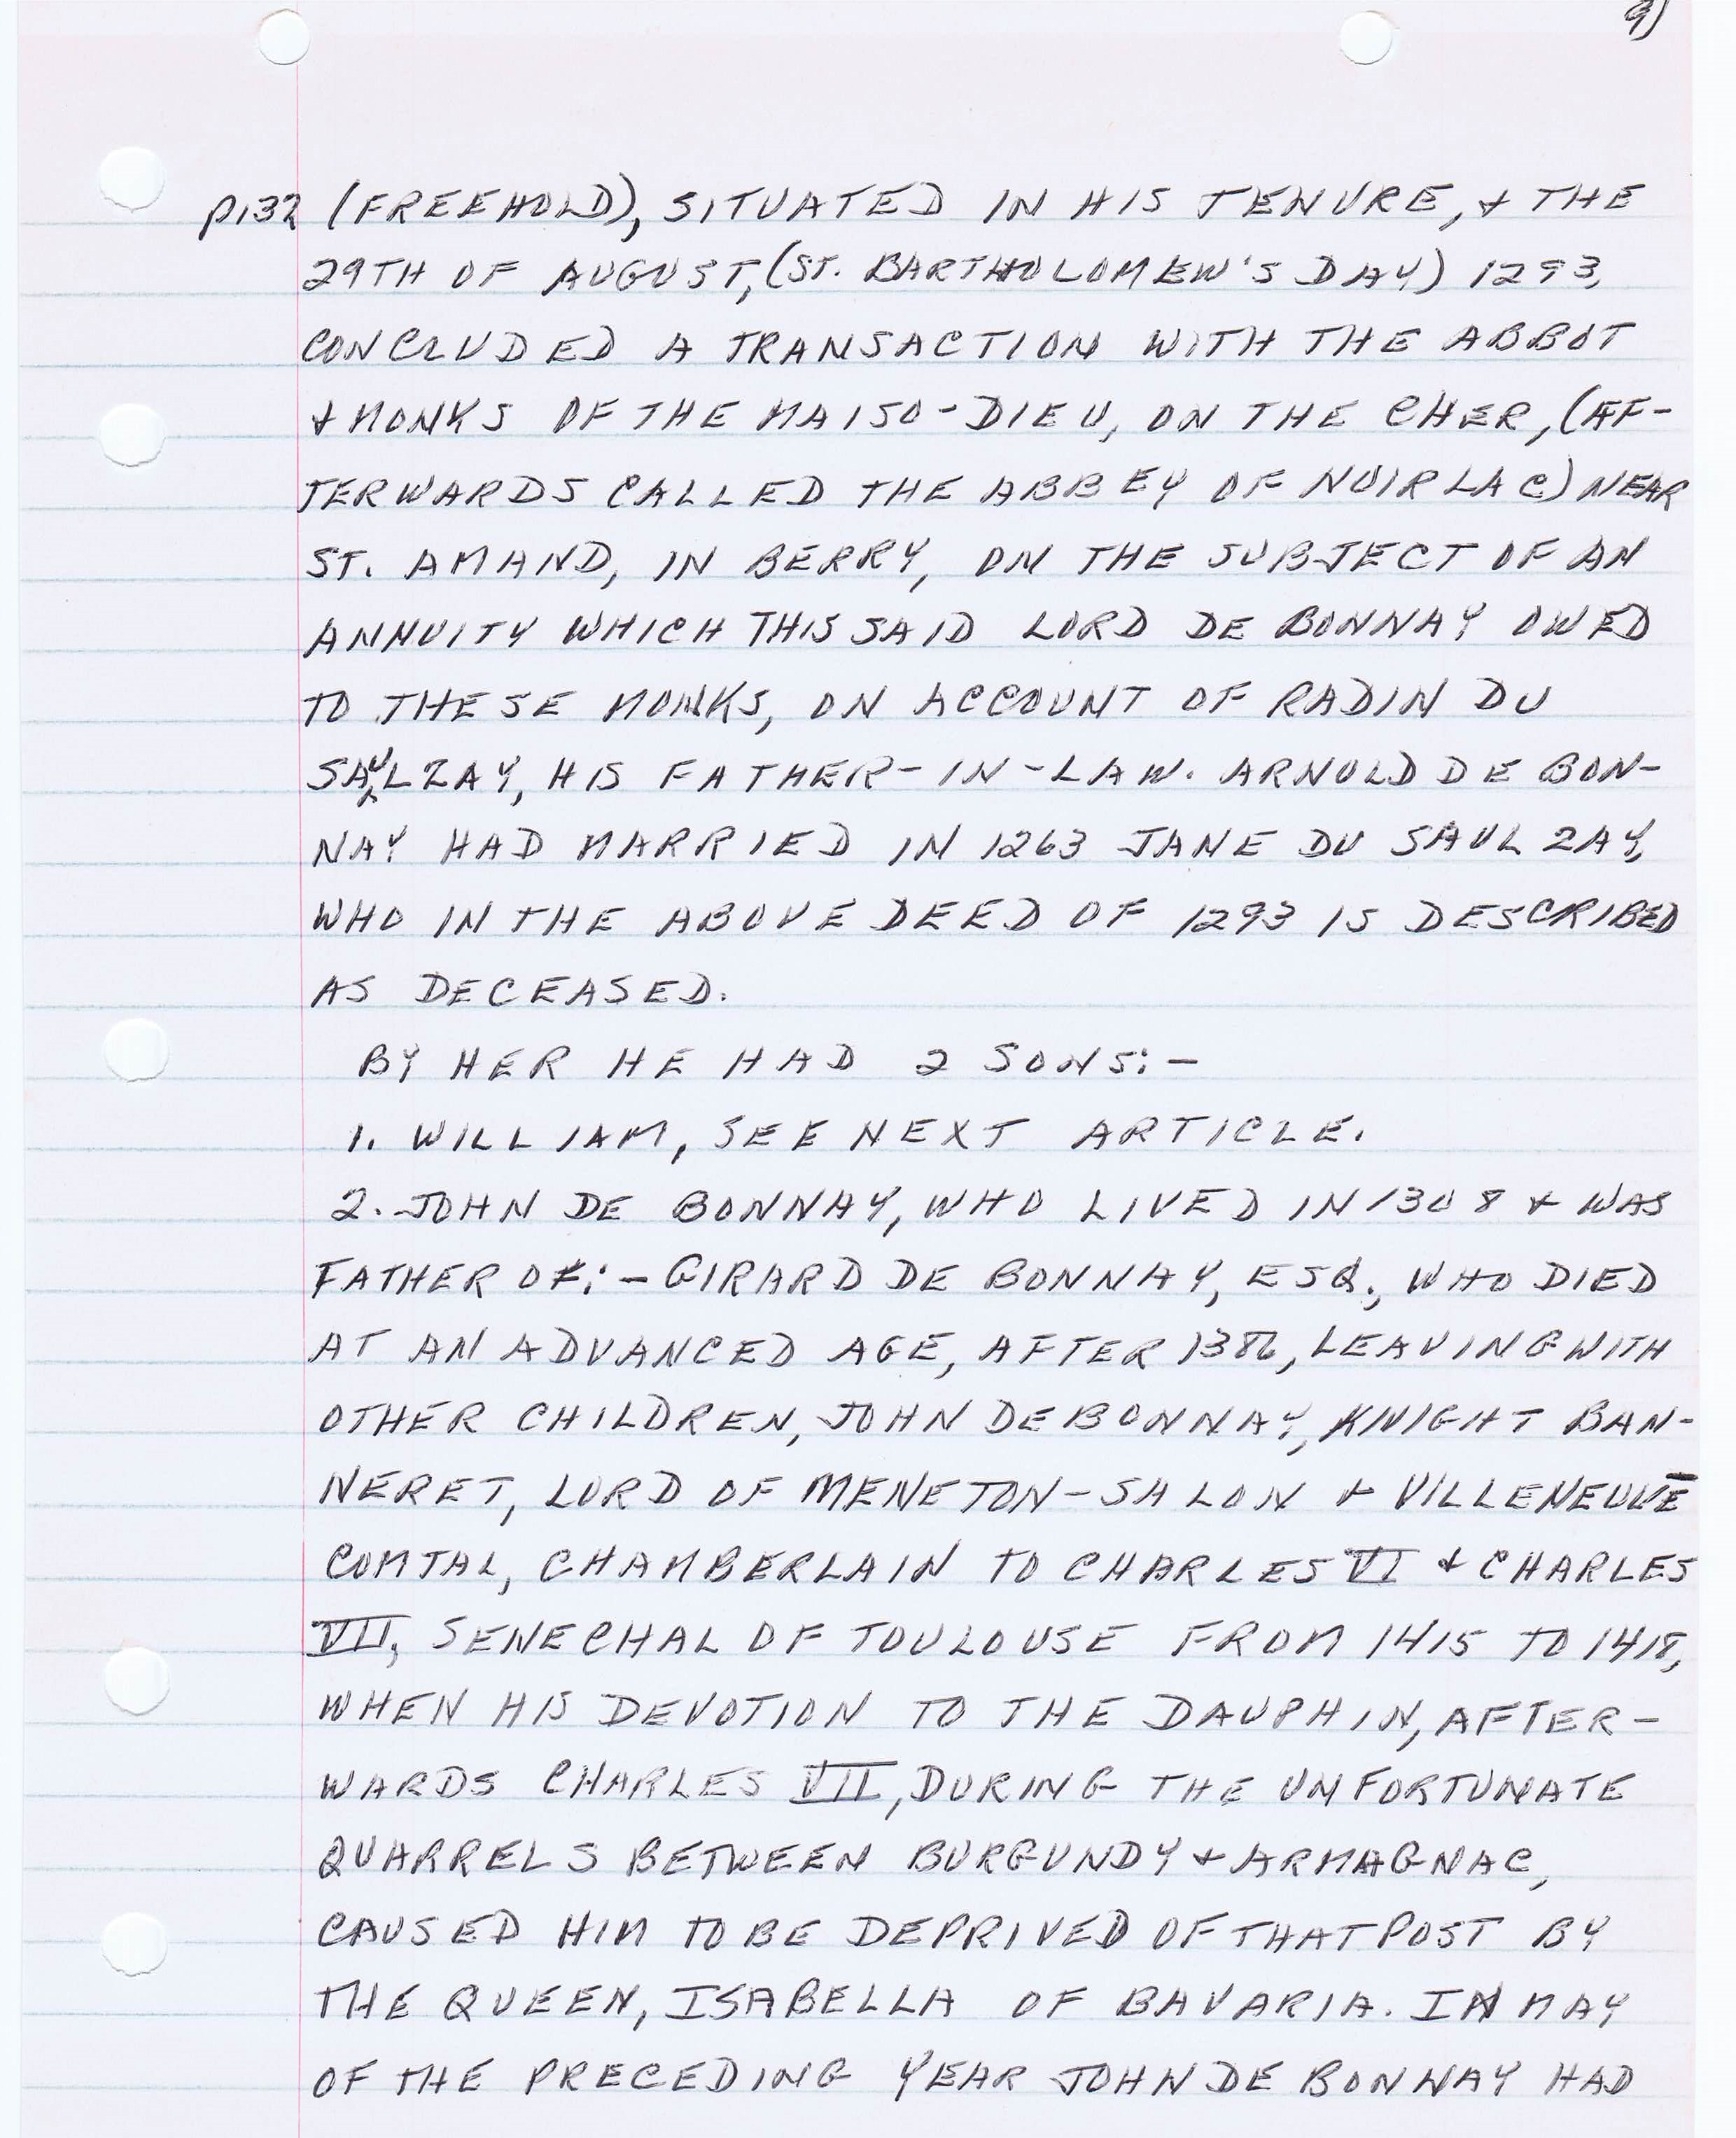 9)
p132 (FREEHOLD), SITUATED IN HIS TENURE, & THE
29TH OF AUGUST, (ST. BARTHOLOMEW'S DAY) 1293,
CONCLUDED A TRANSACTION WITH THE ABBOT
& MONKS OF THE MAISO-DIEU, ON THE CHER, (AF-
TERWARDS CALLED THE ABBEY OF NOIRLAC) NEAR
ST. AMAND, IN BERRY, ON THE SUBJECT OF AN
ANNUITY WHICH THIS SAID LORD DE BONNAY OWED
TO THESE MONKS, ON ACCOUNT OF RADIN DU
SAULZAY, HIS FATHER-IN-LAW. ARNOLD DE BON-
NAY HAD MARRIED IN 1263 JANE DU SAULZAY,
WHO IN THE ABOVE DEED OF 1293 IS DESCRIBED
AS DECEASED.
BY HER HE HAD 2 SONS:-
1. WILLIAM, SEE NEXT ARTICLE.
2. JOHN DE BONNAY, WHO LIVED IN 1308 & WAS
FATHER OF:- GIRARD DE BONNAY, ESQ., WHO DIED
AT AN ADVANCED AGE, AFTER 1386, LEAVING WITH
OTHER CHILDREN, JOHN DE BONNAY, KNIGHT BAN-
NERET, LORD OF MENETON-SALON & VILLENEUVE
COMTAL, CHAMBERLAIN TO CHARLES VI & CHARLES
VII, SENECHAL OF TOULOUSE FROM 1415 TO 1418,
WHEN HIS DEVOTION TO THE DAUPHIN, AFTER-
WARDS CHARLES VII, DURING THE UNFORTUNATE
QUARRELS BETWEEN BURGUNDY & ARMAGNAC,
CAUSED HIM TO BE DEPRIVED OF THAT POST BY
THE QUEEN, ISABELLA OF BAVARIA. IN MAY
OF THE PRECEDING YEAR JOHN DE BONNAY HAD